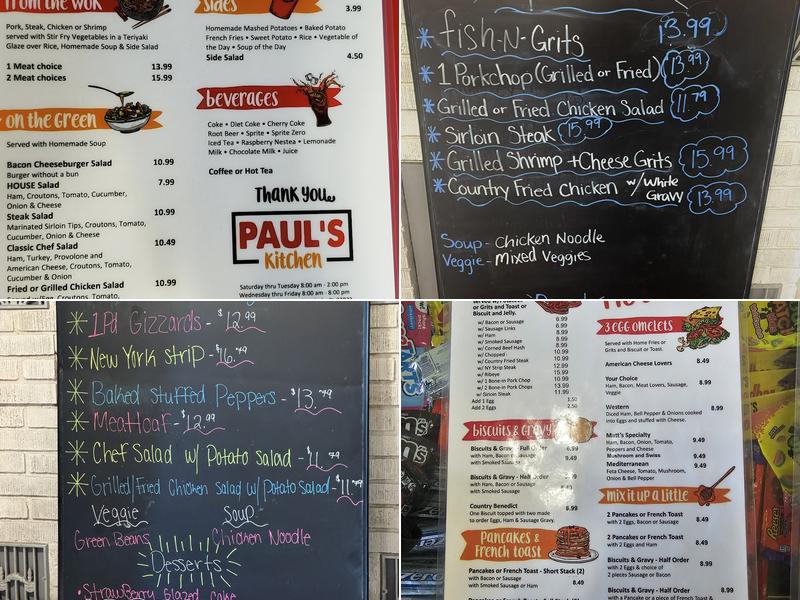 from the wok
Pork, Steak, Chicken or Shrimp
served with Stir Fry Vegetables in a Teriyaki
Glaze over Rice, Homemade Soup & Side Salad
1 Meat choice 13.99
2 Meat choices 15.99
on the green
Served with Homemade Soup
Bacon Cheeseburger Salad 10.99
Burger without a bun
HOUSE Salad 7.99
Ham, Croutons, Tomato, Cucumber,
Onion & Cheese
Steak Salad 10.99
Marinated Sirloin Tips, Croutons, Tomato,
Cucumber, Onion & Cheese
Classic Chef Salad 10.49
Ham, Turkey, Provolone and
American Cheese, Croutons, Tomato,
Cucumber & Onion
Fried or Grilled Chicken Salad 10.99
Croutons, Tomato,
sides
3.99
Homemade Mashed Potatoes • Baked Potato
French Fries • Sweet Potato • Rice • Vegetable of
the Day • Soup of the Day
Side Salad 4.50
beverages
Coke • Diet Coke • Cherry Coke
Root Beer • Sprite • Sprite Zero
Iced Tea • Raspberry Nestea • Lemonade
Milk • Chocolate Milk • Juice
Coffee or Hot Tea
Thank you
PAUL'S
Kitchen
Saturday thru Tuesday 8:00 am - 2:00 pm
Wednesday thru Friday 8:00 am - 8:00 pm
fish-N-Grits 13.99
1 Porkchop (Grilled or Fried) 13.99
Grilled or Fried Chicken Salad 11.79
Sirloin Steak 15.99
Grilled Shrimp + Cheese Grits 15.99
Country Fried Chicken w/ White
Gravy 13.99
Soup - Chicken Noodle
Veggie - Mixed Veggies
1Pd Gizzards - $12.99
New York Strip - $16.79
Baked Stuffed Peppers - $13.79
Meatloaf - $12.99
Chef Salad w/ Potato salad - $11.79
Grilled/Fried Chicken Salad w/ Potato Salad - $11.79
Veggie Soup
Green Beans Chicken Noodle
Desserts
• Strawberry Glazed Cake
Grits and Toast or
Biscuit and Jelly.
w/ Bacon or Sausage 6.99
w/ Sausage Links 6.99
w/ Ham 8.99
w/ Smoked Sausage 8.99
w/ Corned Beef Hash 8.99
w/ Chopped 10.99
w/ Country Fried Steak 10.99
w/ NY Strip Steak 12.99
w/ Ribeye 15.99
w/ 1 Bone-in Pork Chop 10.99
w/ 2 Bone-in Pork Chops 13.99
w/ Sirloin Steak 11.99
Add 1 Egg 1.50
Add 2 Eggs 2.50
biscuits & gravy
Biscuits & Gravy - Full Order 6.99
with Ham, Bacon or Sausage 9.49
with Smoked Sausage
Biscuits & Gravy - Half Order
with Ham, Bacon or Sausage
with Smoked Sausage
Country Benedict 8.99
One Biscuit topped with two made
to order Eggs, Ham & Sausage Gravy.
Pancakes &
French toast
Pancakes or French Toast - Short Stack (2)
with Bacon or Sausage
with Smoked Sausage or Ham 8.49
3 EGG omelets
Served with Home Fries or
Grits and Biscuit or Toast.
American Cheese Lovers 8.49
Your Choice 8.99
Ham, Bacon, Meat Lovers, Sausage,
Veggie
Western 8.99
Diced Ham, Bell Pepper & Onions cooked
into Eggs and stuffed with Cheese.
Mutt's Specialty 9.49
Ham, Bacon, Onion, Tomato,
Peppers and Cheese
Mushroom and Swiss 9.49
Mediterranean 9.49
Feta Cheese, Tomato, Mushroom,
Onion & Bell Pepper
mix it up a little
2 Pancakes or French Toast
with 2 Eggs, Bacon or Sausage 8.49
2 Pancakes or French Toast
with 2 Eggs and Ham 8.49
Biscuits & Gravy - Half Order 8.99
with 2 Eggs & choice of
2 pieces Sausage or Bacon
Biscuits & Gravy - Half Order 8.99
with a Pancake or a piece of French Toast &